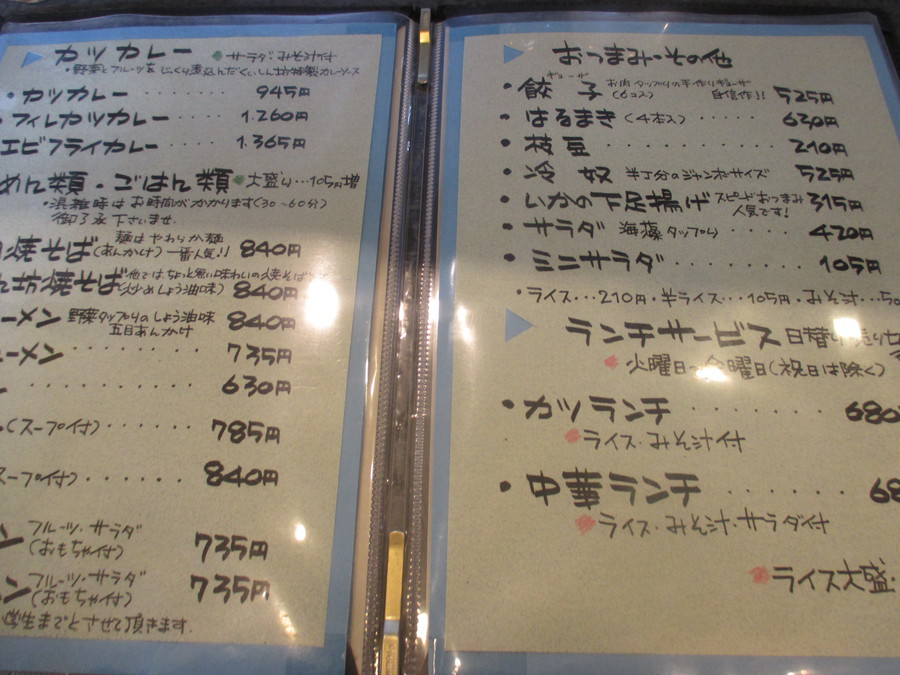 カツカレー サラダ・みそ汁付
・野菜とフルーツをじっくり煮込んだくいしん坊特製カレーソース
・カツカレー ・・・・・・ 945円
・フィレカツカレー ・・・・ 1.260円
エビフライカレー ・・・・ 1.365円
めん類・ごはん類 大盛り…105円増
・混雑時はお時間がかかります(30~60分)
御了承下さいませ.
焼そば 麺はやわらか麺 (あんかけ)一番人気!! 840円
ん坊焼そば 他ではちょっと無い味わいの焼そば (炒めしょう油味) 840円
ーメン 野菜タップリのしょう油味 五目あんかけ 840円
ーメン ・・・・・・・・ 735円
・・・・・・・・ 630円
(スープ付) ・・・・・ 785円
スープ付) ・・・・・・ 840円
ン フルーツ・サラダ (おもちゃ付) 735円
ン フルーツ・サラダ (おもちゃ付) 735円
学生までとさせて頂きます.
おつまみ・その他
・餃子 ギョーザ (6コ入) お肉タップリの手作りギョーザ 自信作!! 525円
・はるまき (4本入) ・・・・・ 630円
・枝豆 ・・・・・・・・・ 210円
・冷奴 半丁分のジャンボサイズ 525円
・いかの下足揚げ スピードおつまみ 人気です! 315円
・サラダ 海藻タップリ ・・・・ 420円
・ミニサラダ ・・・・・・・ 105円
・ライス…210円・半ライス…105円・みそ汁…50
ランチサービス 日替り
火曜日~金曜日(祝日は除く)
・カツランチ ・・・・・・ 680
ライス・みそ汁付
・中華ランチ ・・・・・・ 68
ライス・みそ汁・サラダ付
ライス大盛・